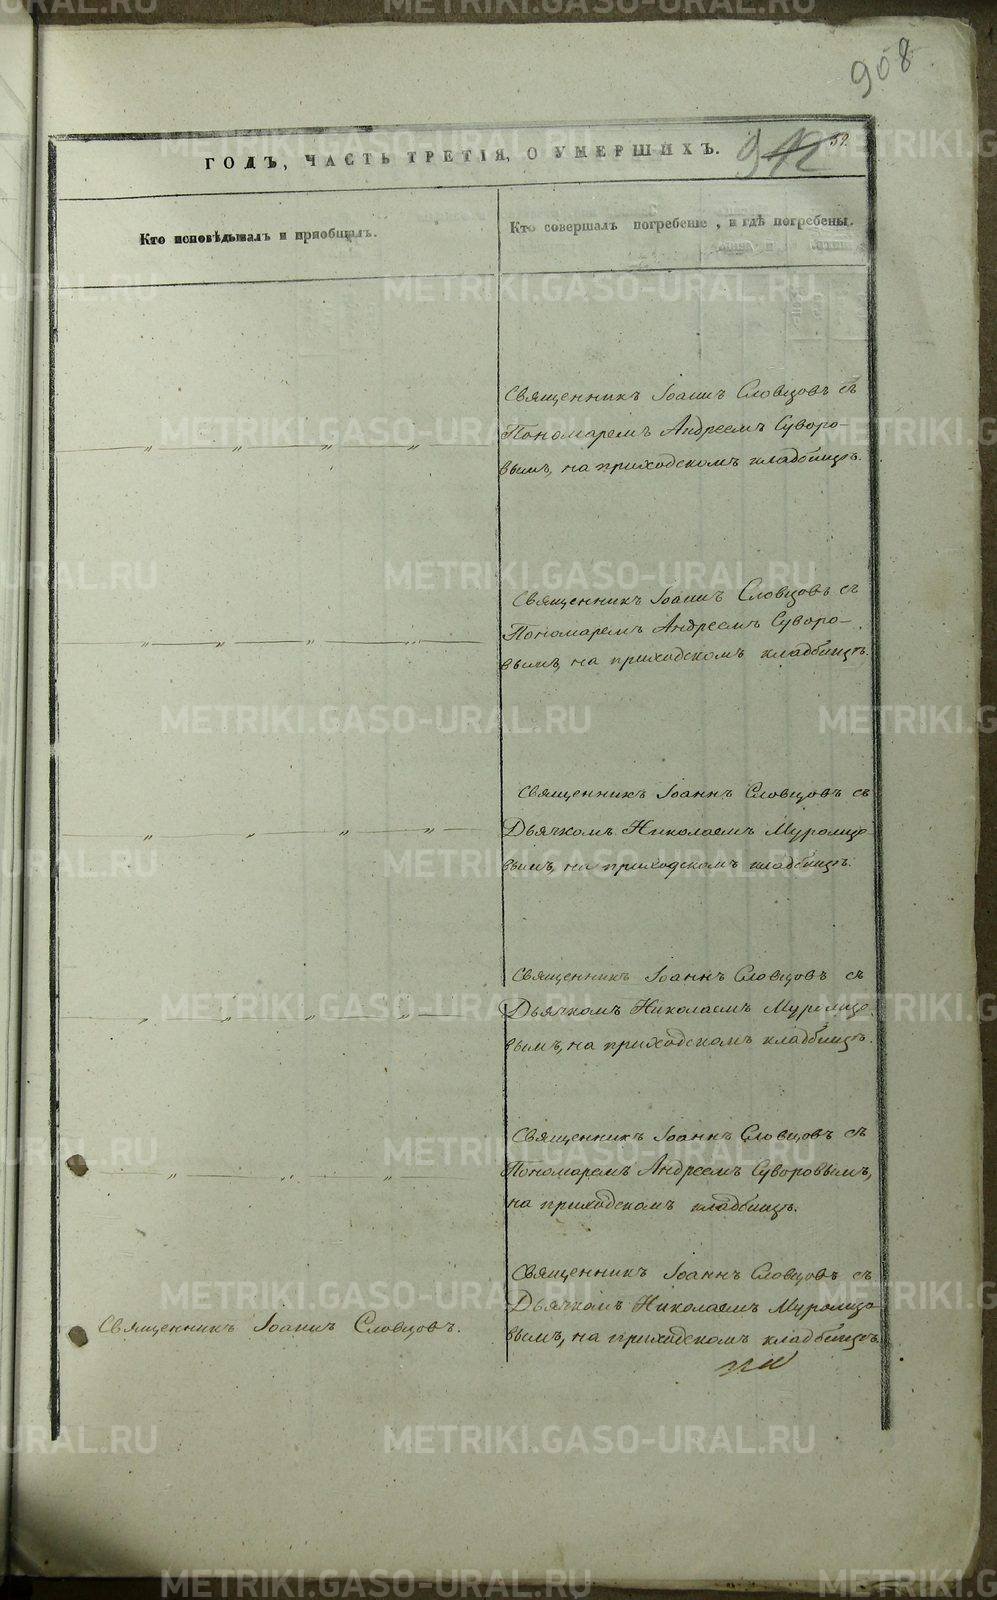 908
912 52.
ГОДЪ, ЧАСТЬ ТРЕТІЯ, О УМЕРШИХЪ.
Кто исповѣдывалъ и пріобщалъ.
Кто совершалъ погребеніе, и гдѣ погребены.
Священникъ Іоаннъ Словцовъ съ
Пономаремъ Андреемъ Суворо-
вымъ, на приходскомъ кладбищѣ.
Священникъ Іоаннъ Словцовъ съ
Пономаремъ Андреемъ Суворо-
вымъ, на приходскомъ кладбищѣ.
Священникъ Іоаннъ Словцовъ съ
Дьячкомъ Николаемъ Муромцо-
вымъ, на приходскомъ кладбищѣ.
Священникъ Іоаннъ Словцовъ съ
Дьячкомъ Николаемъ Муромцо-
вымъ, на приходскомъ кладбищѣ.
Священникъ Іоаннъ Словцовъ съ
Пономаремъ Андреемъ Суворовымъ,
на приходскомъ кладбищѣ.
Священникъ Іоаннъ Словцовъ.
Священникъ Іоаннъ Словцовъ съ
Дьячкомъ Николаемъ Муромцо-
вымъ, на приходскомъ кладбищѣ.
METRIKI.GASO-URAL.RU